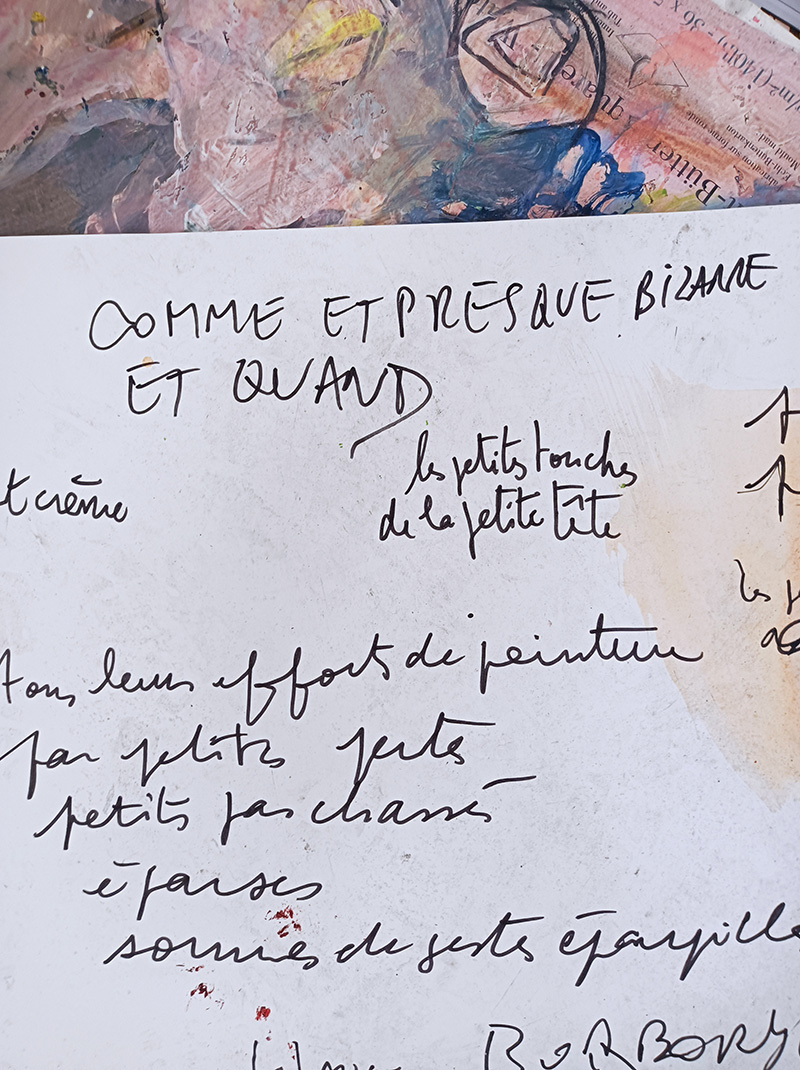 /m² (140lb) - 36 x
COMME ET PRESQUE BIZARRE
ET QUAND
les petites touches
de la petite tête
t crème
tous leurs efforts de peinture
par petits gestes
petits pas chassés
éparses
sommes de gestes éparpillé
BORBORY